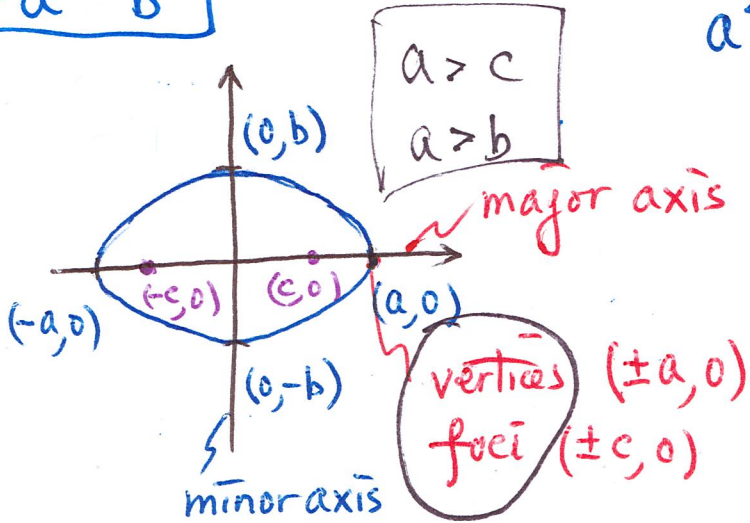 a b
a
a > c
a > b
(0,b)
major axis
(-c,0) (c,0)
(-a,0) (a,0)
(0,-b)
vertices (±a,0)
foci (±c,0)
minor axis